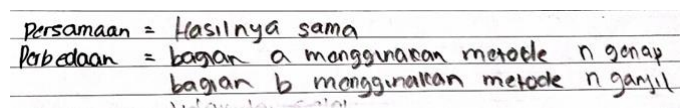 Persamaan = Hasilnya sama
Perbedaan = bagian a menggunakan metode n genap
bagian b menggunakan metode n ganjil